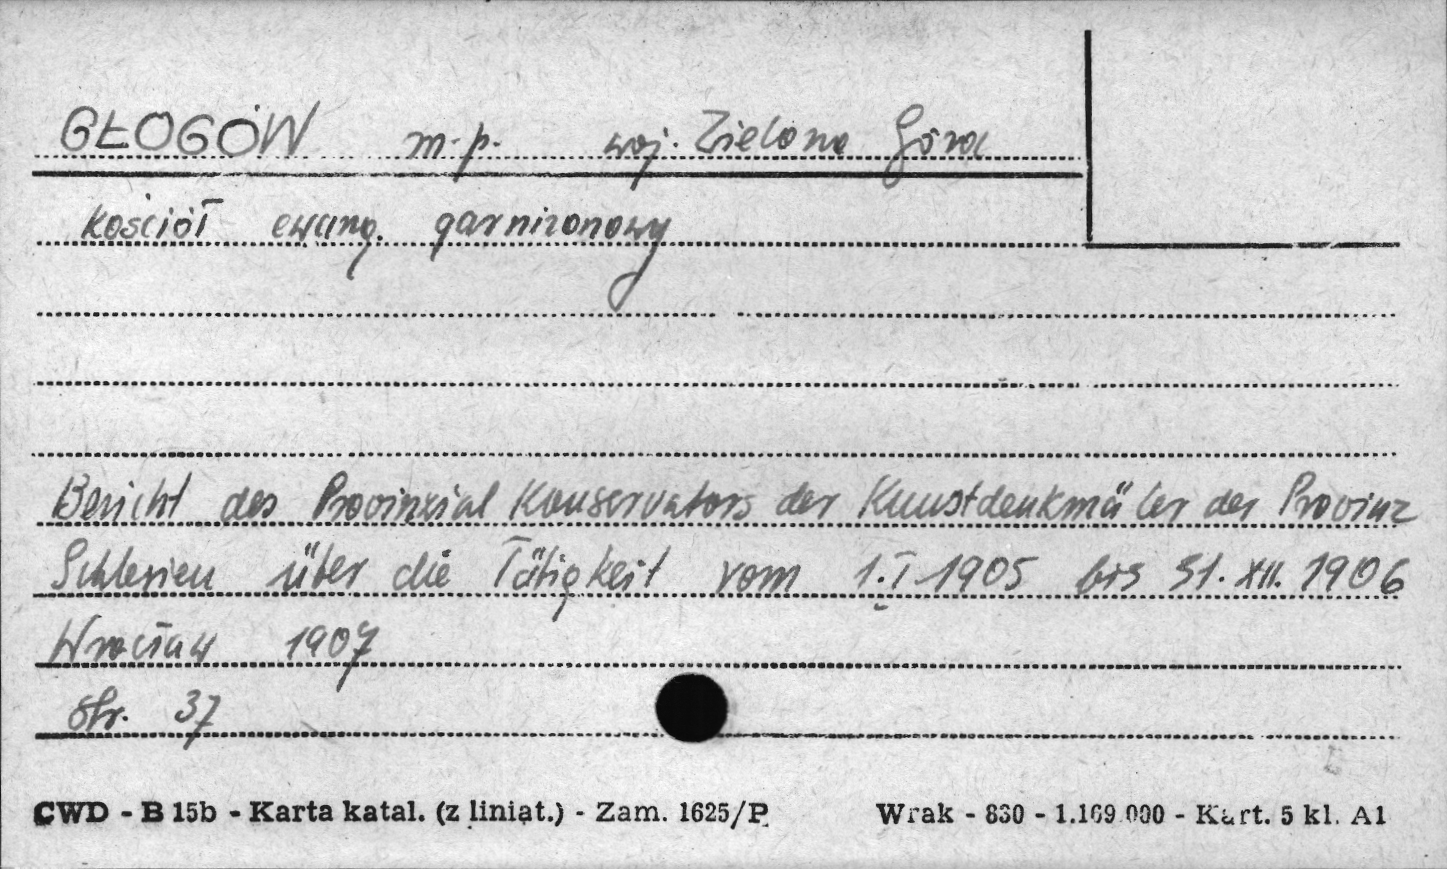 GŁOGÓW m.p. woj. Zielona Góra
kościół ewang. garnizonowy
Bericht des Provinzial Konservators der Kunstdenkmäler der Provinz
Schlesien über die Tätigkeit vom 1.I.1905 bis 31.XII.1906
Wrocław 1907
str. 37
CWD - B 15b - Karta katal. (z liniat.) - Zam. 1625/P Wrak - 830 - 1.169.000 - Kart. 5 kl. A1